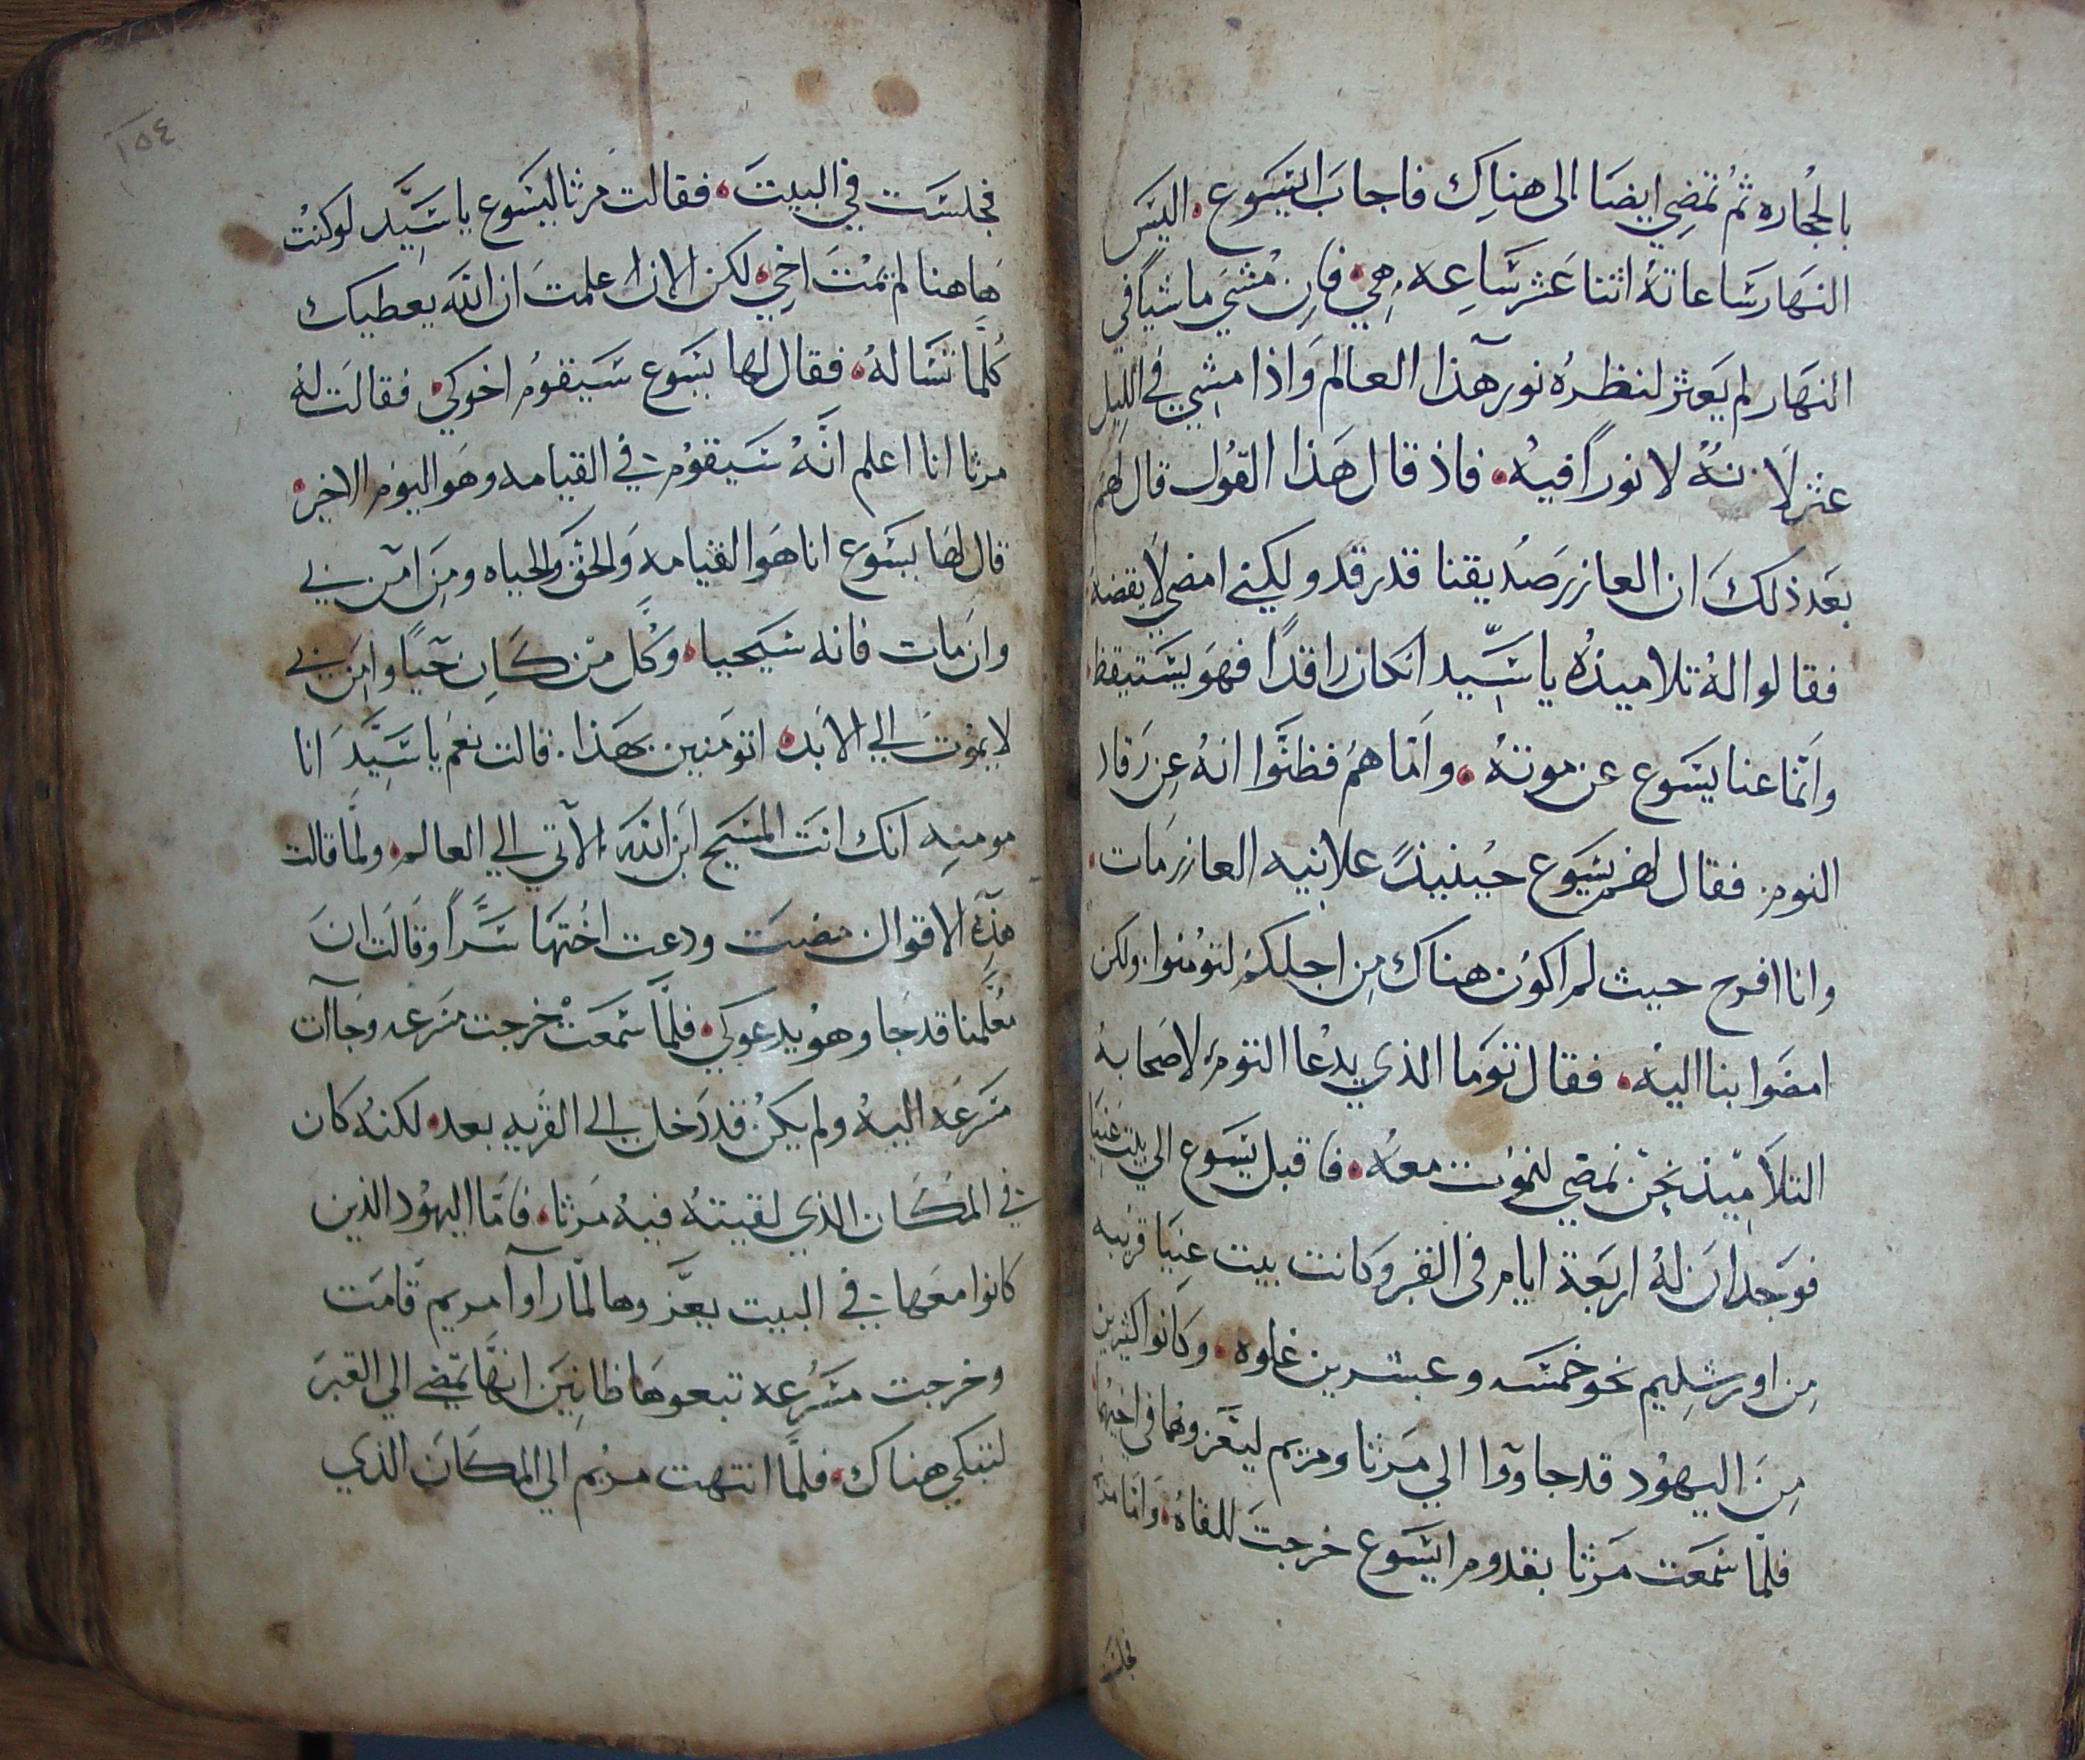 بالحُجاره ثمُ تمضِي ايضَا الى هناِك فاجابَ ايسَوع. اليسَ
النهَار سَاعاتهُ اثنتا عَشر سَاعِه هِي. فاِن مُشَي ماشيًا في
النهَار لم يَعثر لنظرهُ نور هَذا العالم وَاذا مشِي في الليل
عثر لاَنهُ لا نورًا فيهُ. فاذ قال هَذا القوُل قال لهَم
بعَد ذلكَ ان العازر صَديقنا قد رقد ولكِني امضي لايقضهُ
فقالوا لهُ تلاميذهُ يا سَيِّد انكان راقدًا فهوَ يسَتيقظ.
وانمَّا عنا يسَوع عن موتهُ. وامَّا همُ فظنَّوا انهُ عِن رَقاد
النوم. فقال لهَم يسَوع حيُنيذً علانيه العازر مَات.
وانا افرح حيث لم اكوُن هناك مِن اجلكمُ لتوُمنوا. ولكن
امضَوا بنا اليهُ. فقال توَما الذي يدعُا التوم لاصَحابهُ
التلاَميِذ نحِن نمضي لنموُت معهُ. فاقبل يسَوع الي بيت عَنيا
فوَجد انَ لهُ اربعَة ايام في القبر وَكانت بيت عِنيَا قريبه
مِن اورشِليم نحو خمسَه وعشرين غلوه. وَكانوا كثيرين
مِنَ اليهوُد قد جاووا الي مَرثا ومريم ليعَزوهُما في اخيهُما
فلمَّا سَمعَت مَرثا بقدوم ايسَوع خرجتَ للقاهُ. وَامَا مريم
فجلسَت
١٥٤
فجلسَت في البيتَ. فقالت مرثا ليسَوع يا سَيِّد لو كنتُ
هَاهنا لم تمُتَ اخِي. لكن الان اَعلمتَ ان اللهَ يعطيك
كُلَّما تسَالهُ. فقال لها يسَوع سَيقومُ اخوكي. فقالتَ لهُ
مرثا انا اعلم انَّهُ سَيقوُم في القيامه وهَو اليَومَ الاخيرَ.
قال لهَا يسَوع انا هَوا القيامه وَالحقَ وَالحياه ومنَ آمن بي
وان مَات فانه سَيحيا. وَكُل مَن كَاِن حَيًا وآمَن بي
لا يموُت الي الابَد. اتومَنين بهَذا. قالت نعَم يا سَيِّد انا
مومنِه انك انتَ المسَيح ابَن اللهَ الآتي الي العالم. ولمَّا قالت
هذَه الاقوال مضتَ ودعت اخُتهَا سَرًّا وقَالَت انَ
مُعلمنا قد جَا وهوُ يدعوكي. فلمَّا سَمعَتْ خرجت مسَرعه وجَاآت
مَسَرعَه اليهُ ولم يكنُ قد دَخل الي القَريه بعد. لكنهُ كان
في المكَان الذي لقيتهُ فيهُ مَرثا. فامَّا اليهوُد الذين
كانوا معَها في البيت يعَزوها لمَّا رآوا مريم قامَت
وخرجت مسَرُعِه تبعوهَا ظانِينَ انهَّا تمضي الي القبرَ
لتبكي هناك. فلمَّا انتهت مريم الي المكَان الذي